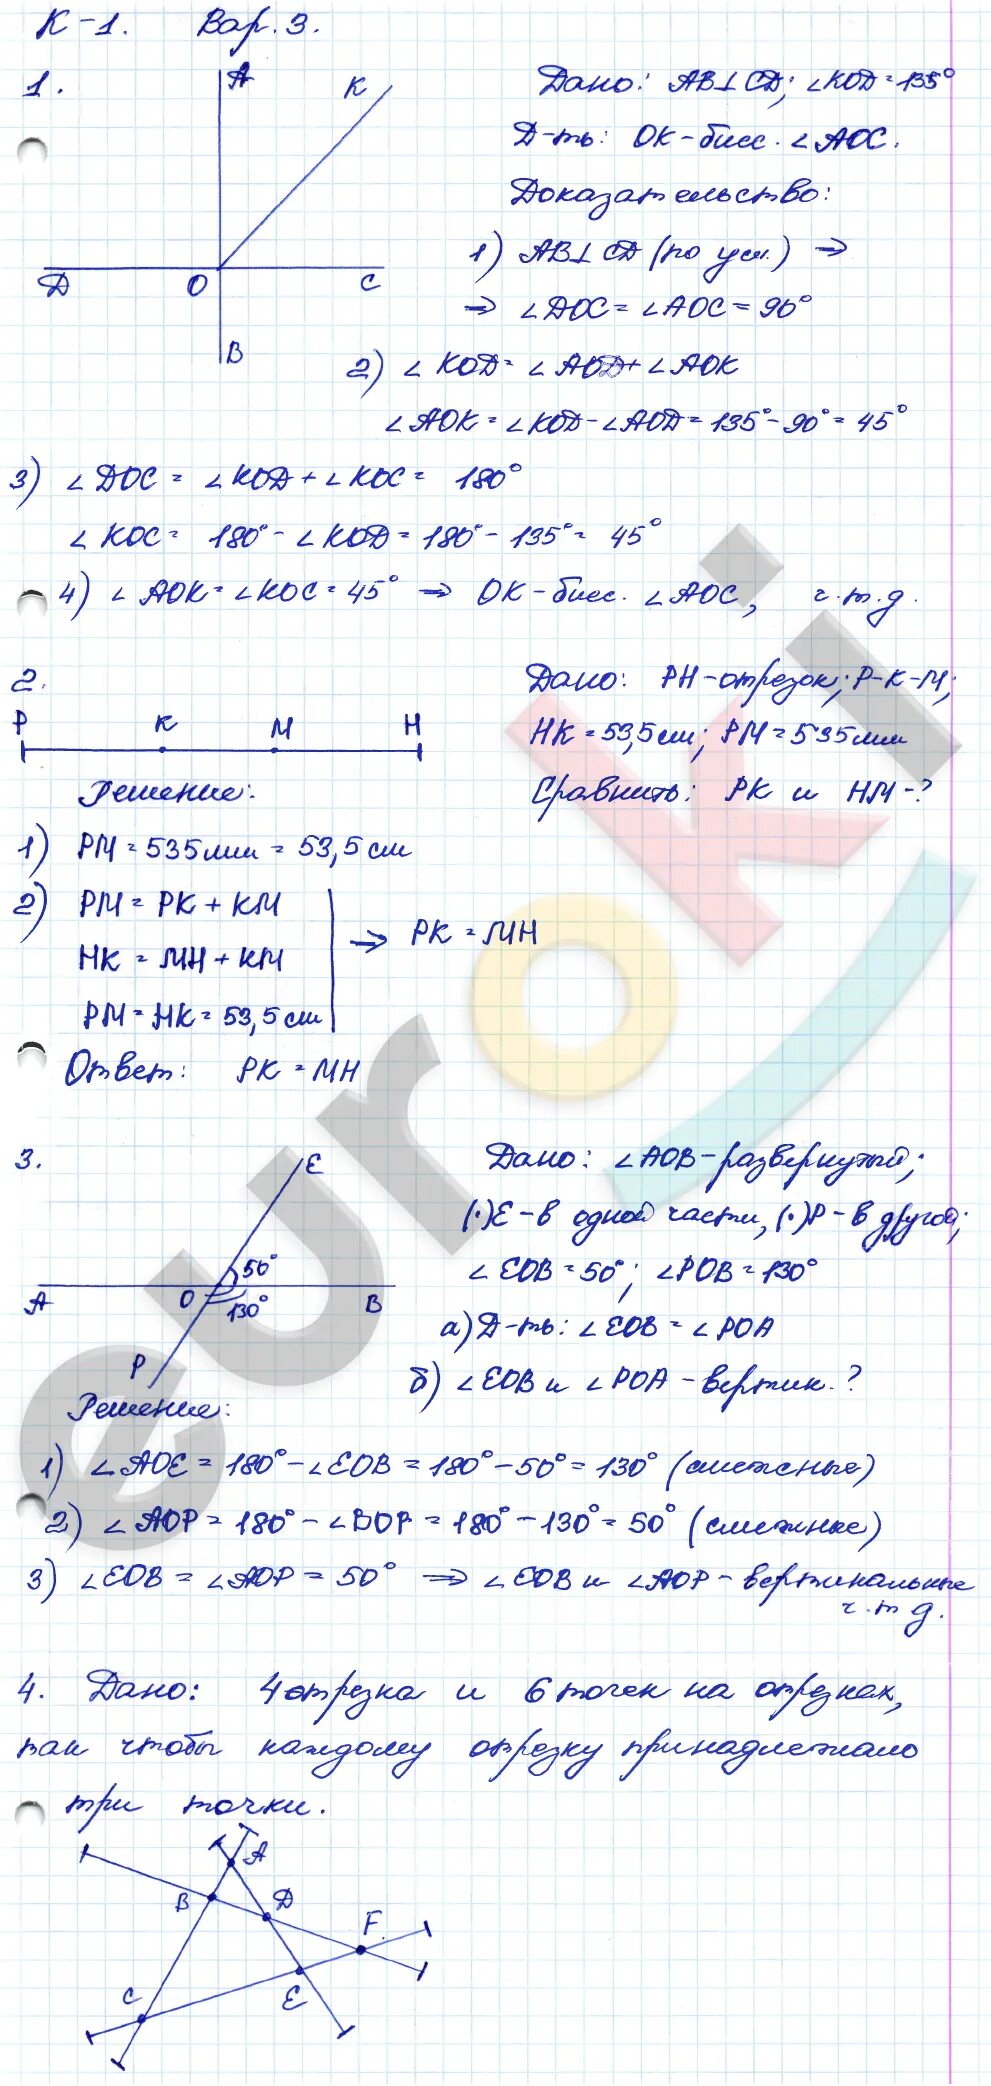 К-1. Вар. 3.
1.
A
K
D
O
C
B
Дано: AB⊥CD; ∠KOD=135°
Д-ть: OK-бисс. ∠AOC.
Доказательство:
1) AB⊥CD (по усл.) ⇒
⇒ ∠DOC=∠AOC=90°
2) ∠KOD=∠AOD+∠AOK
∠AOK=∠KOD-∠AOD=135°-90°=45°
3) ∠DOC=∠KOD+∠KOC= 180°
∠KOC= 180°-∠KOD=180°-135°= 45°
4) ∠AOK=∠KOC=45° ⇒ OK-бисс. ∠AOC, ч.т.д.
2.
P K M H
Дано: PH-отрезок; P-K-M;
HK=53,5см; PM=535мм
Сравнить: PK и HM-?
Решение:
1) PM=535мм=53,5см
2) PM=PK+KM
HK=MH+KM
PM=HK=53,5см
⇒ PK=MH
Ответ: PK=MH
3.
E
50°
A
O
130°
B
P
Дано: ∠AOB-развернутый;
(·)E-в одной части, (·)P-в другой;
∠EOB=50°; ∠POB=130°
а) Д-ть: ∠EOB=∠POA
б) ∠EOB и ∠POA-вертик.?
Решение:
1) ∠AOE=180°-∠EOB=180°-50°=130° (смежные)
2) ∠AOP=180°-∠BOP=180°-130°=50° (смежные)
3) ∠EOB=∠AOP=50° ⇒ ∠EOB и ∠AOP-вертикальные
ч.т.д.
4. Дано: 4 отрезка и 6 точек на отрезках,
так чтобы каждому отрезку принадлежало
три точки.
A
B
D
F
C
E
euroki